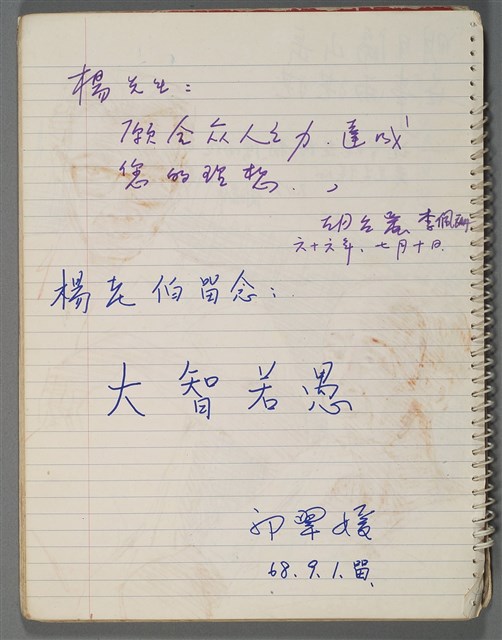 楊先生:
願合众人之力.達成
您的理想.
胡台麗 李佩珊
六十六年.七月十日.
楊老伯留念:
大智若愚
邱翠媛
68.9.1.留